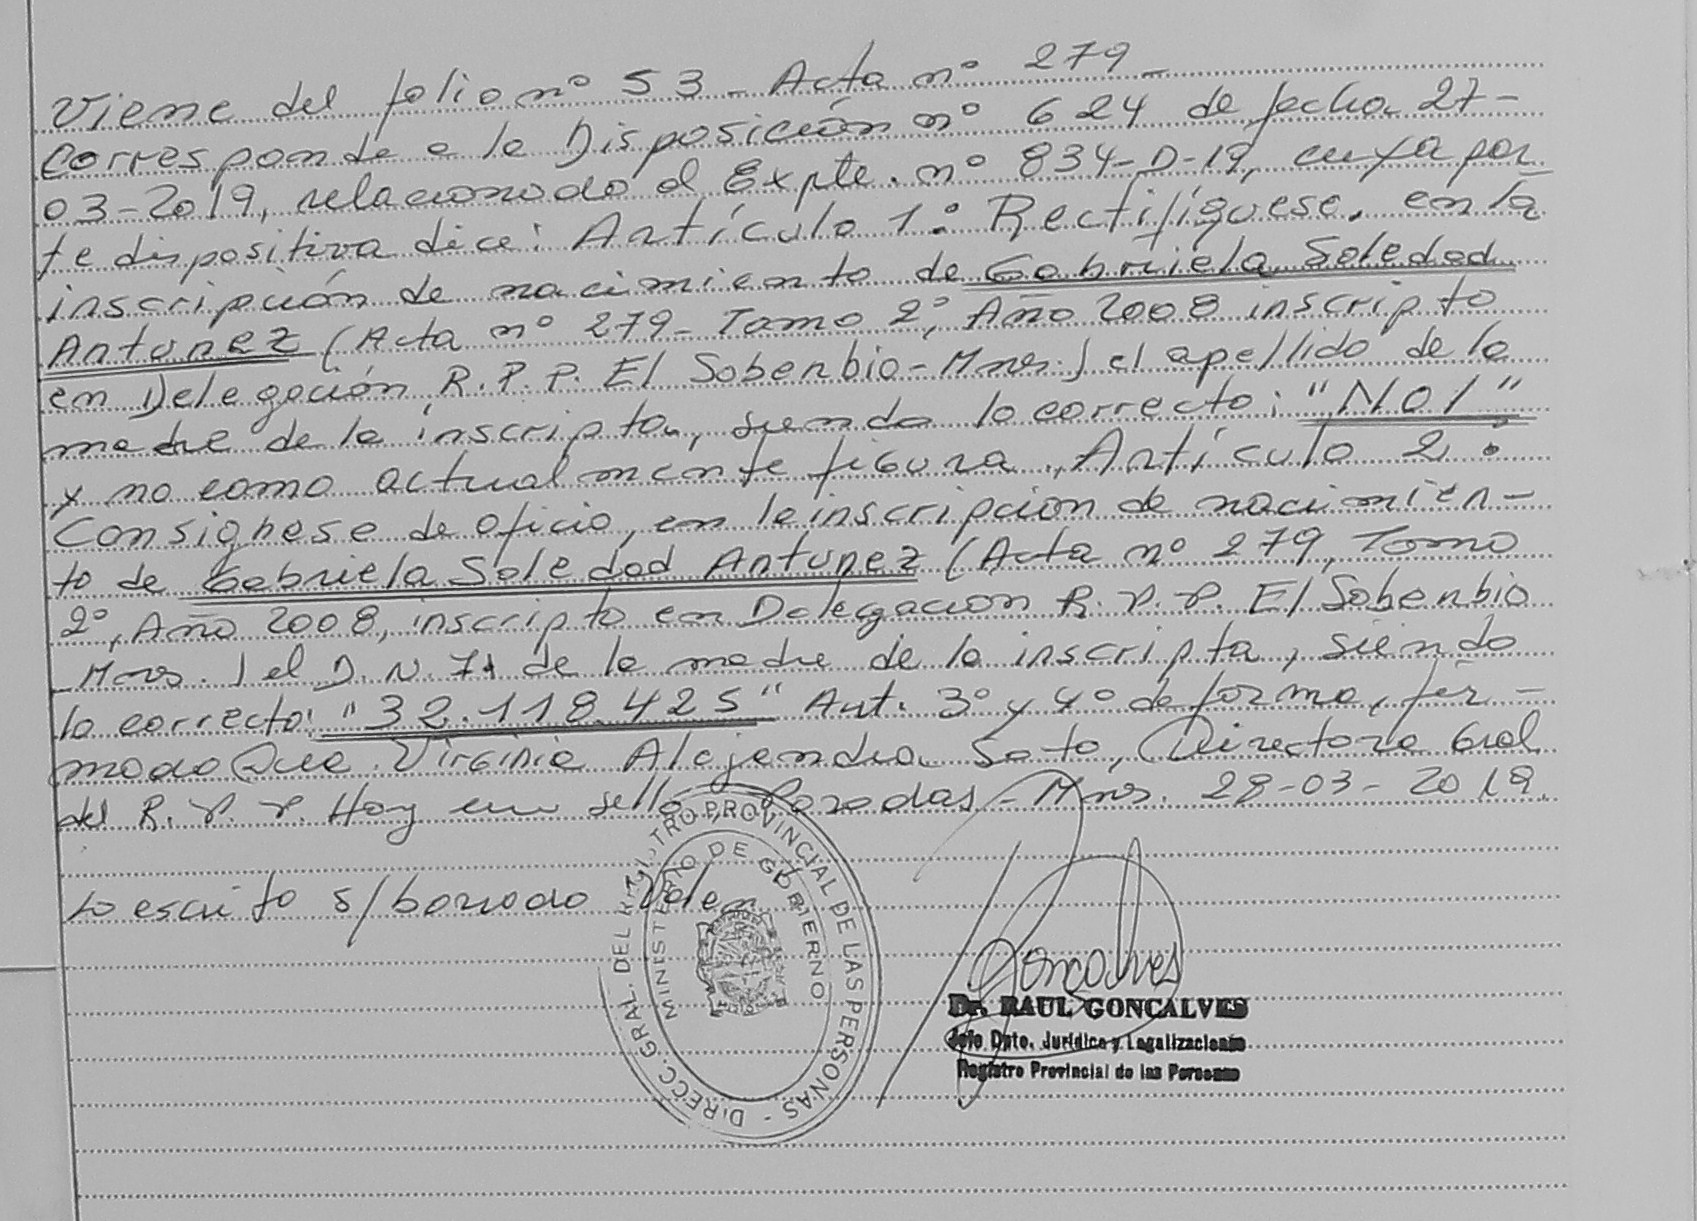 Viene del folio nº 53 - Acta nº 279 -
Corresponde a la Disposición nº 624 de fecha 27-
03-2019, relacionado al Expte. nº 834-D-19, cuya par
te dispositiva dice: Artículo 1º: Rectifíquese, en la
inscripción de nacimiento de Gabriela Soledad
Antunez (Acta nº 279 - Tomo 2º, Año 2008 inscripto
en Delegación R.P.P. El Soberbio - Mnes.) el apellido de la
madre de la inscripta, siendo lo correcto: "NOI"
y no como actualmente figura. Artículo 2º:
Consignese de oficio, en la inscripción de nacimien-
to de Gabriela Soledad Antunez (Acta nº 279, Tomo
2º, Año 2008, inscripto en Delegación R.P.P. El Soberbio
- Mnes.) el D.N.I. de la madre de la inscripta, siendo
lo correcto: "32.118.425" Art. 3º y 4º de forma, fir-
mado Dra. Virginia Alejandra Soto, Directora Gral
del R.P.P. Hay un sello. Posadas - Mnes. 28-03-2019.
Lo escrito s/borrado Vale.
DIRECC. GRAL. DEL REGISTRO PROVINCIAL DE LAS PERSONAS -
MINISTERIO DE GOBIERNO
Gonçalves
Dr. RAUL GONCALVES
Jefe Dpto. Jurídica y Legalizaciones
Registro Provincial de las Personas